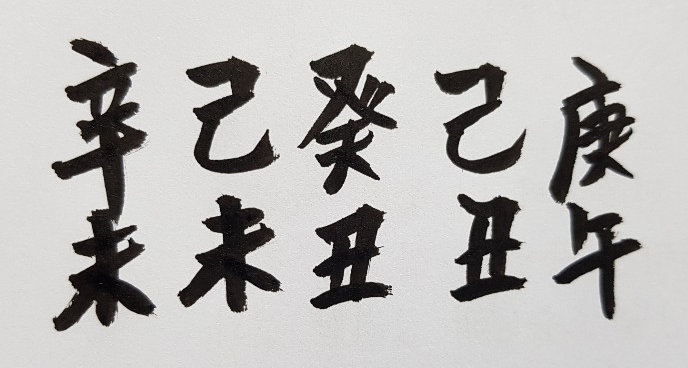 庚午
己丑
癸丑
己未
辛未